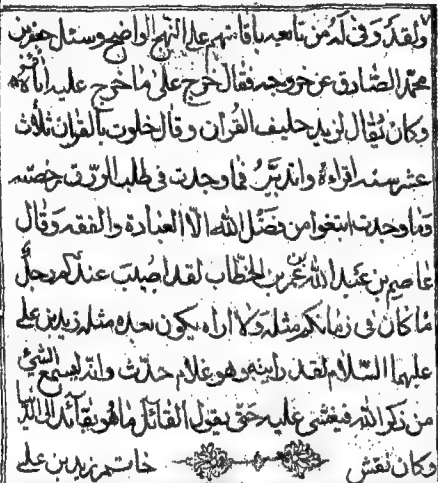 ولقد وفى له من تابعه باقامتهم على النهج الواضح وسئل جعفر بن
محمد الصادق عن خروجه فقال خرج على ما خرج عليه اباؤه
وكان يقال لزيد حليف القران وقال خلوت بالقران ثلاث
عشر سنه اقراءه واتدبره فما وجدت في طلب الرزق رخصه
وما وجدت ابتغوا من فضل الله الا العبادة والفقه وقال
عاصم بن عبد الله بن عمر بن الخطاب لقد اصيب عندكم رجل
ما كان في زمانكم مثله ولا اراه يكون بعده مثله زيد بن علي
عليهما السلام لقد رايته وهو غلام حدث وانه ليسمع الشي
من ذكر الله فيغشى عليه حتى يقول القائل ما هو بعائد الى الدنيا
وكان نقش خاتم زيد بن علي